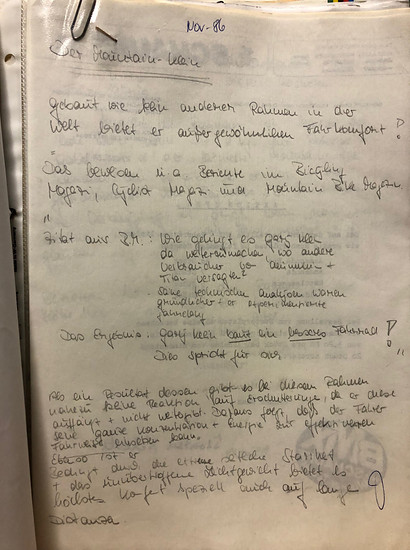 Nov-86
Der Mountain-Klein
gebaut wie kein anderer Rahmen in der
Welt bietet er außergewöhnlichen Fahrkomfort !
Das beweisen u.a. Berichte im Bicycling
Magazi, Cyclist Magazi und Mountain Bike Magazin.
"
Zitat aus B.M.: Wie gelingt es Gary Klein
da weiterzumachen, wo andere
Verbraucher von Aluminium +
Titan versagten
seine technischen Analysen waren
gründlicher + er experimentierte
jahrelang
Das Ergebnis: Gary Klein baut ein besseres Fahrrad !
Dies spricht für sich "
Als ein Resultat dessen gibt es bei diesem Rahmen
nahezu keine Reaktion auf Erschütterungen, da er diese
auffängt + nicht weitergibt. Daraus folgt, dass der Fahrer
seine ganze Konzentration + Energie zur effektiveren
Fahrweise einsetzen kann.
Ebenso ist er
bedingt durch die extreme seitliche Steifheit
+ das unübertroffene Leichtgewicht bietet es
höchsten Komfort speziell auch auf lange
Distanzen